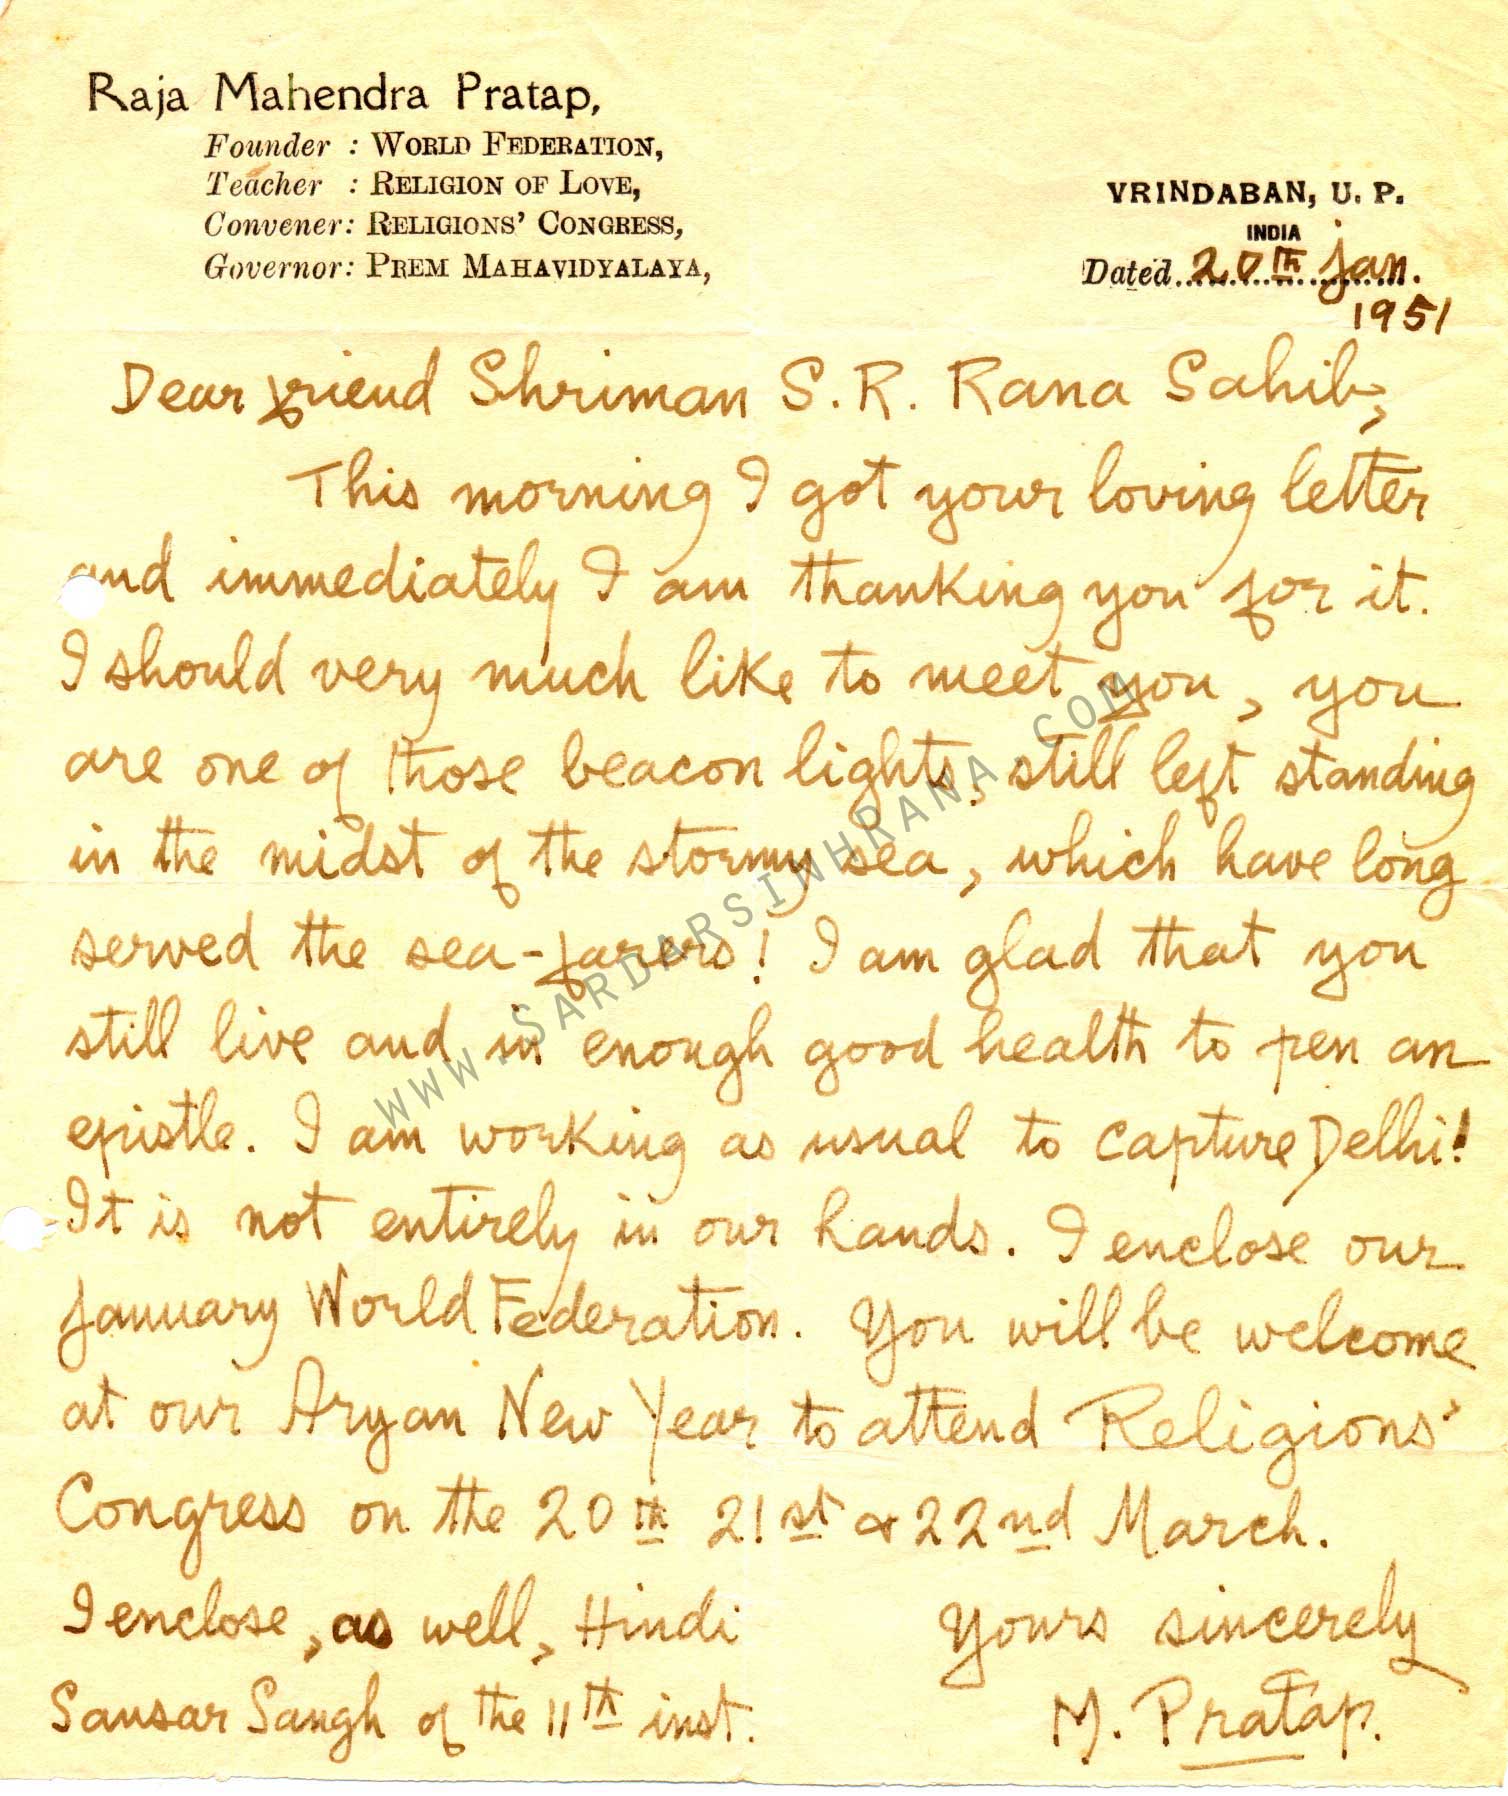 Raja Mahendra Pratap,
Founder : WORLD FEDERATION,
Teacher : RELIGION OF LOVE,
Convener: RELIGIONS' CONGRESS,
Governor: PREM MAHAVIDYALAYA,
VRINDABAN, U. P.
INDIA
Dated 20th Jan.
1951
Dear friend Shriman S. R. Rana Sahib,
This morning I got your loving letter
and immediately I am thanking you for it.
I should very much like to meet you, you
are one of those beacon lights, still left standing
in the midst of the stormy sea, which have long
served the sea-farers! I am glad that you
still live and in enough good health to pen an
epistle. I am working as usual to capture Delhi!
It is not entirely in our hands. I enclose our
January World Federation. You will be welcome
at our Aryan New Year to attend Religions'
Congress on the 20th 21st & 22nd March.
I enclose, as well, Hindi
Sansar Sangh of the 11th inst.
Yours sincerely
M. Pratap.
www.SARDARSINHRANA.COM